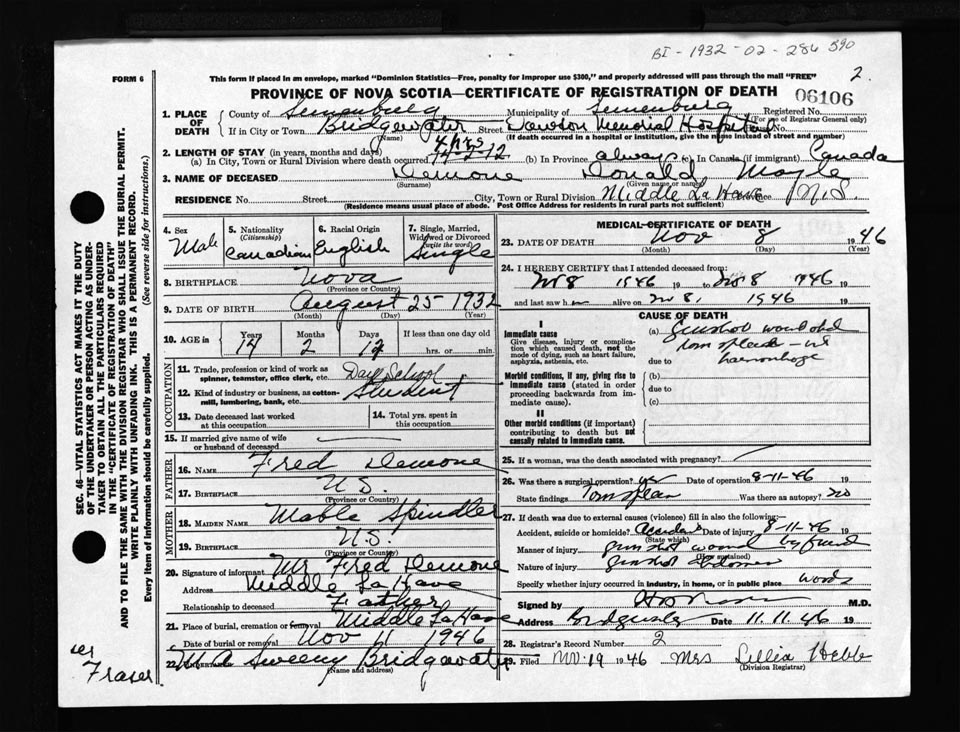 BI - 1932 - 02 - 286 590
2.
FORM 6
This form if placed in an envelope, marked "Dominion Statistics—Free, penalty for improper use $300," and properly addressed will pass through the mail "FREE"
PROVINCE OF NOVA SCOTIA—CERTIFICATE OF REGISTRATION OF DEATH
06106
1. PLACE OF DEATH
County of Lunenburg Municipality of Lunenburg Registered No.
(For use of Registrar General only)
If in City or Town Bridgewater Street Memorial Hospital No.
(Name) (If death occurred in a hospital or institution, give the name instead of street and number)
2. LENGTH OF STAY (in years, months and days)
(a) In City, Town or Rural Division where death occurred 4 hrs 14-2-12 (b) In Province always (c) In Canada (if immigrant) Canada
3. NAME OF DECEASED Demone Donald
(Surname) (Given name or names)
RESIDENCE No. Street City, Town or Rural Division Middle La Have Province N.S.
(Residence means usual place of abode. Post Office Address for residents in rural parts not sufficient)
4. Sex Male
5. Nationality (Citizenship) Canadian
6. Racial Origin English
7. Single, Married, Widowed or Divorced (write the word) Single
8. BIRTHPLACE Nova
(Province or Country)
9. DATE OF BIRTH August 25 1932
(Month) (Day) (Year)
10. AGE in Years 14 Months 2 Days If less than one day old hrs. or min.
OCCUPATION
11. Trade, profession or kind of work as spinner, teamster, office clerk, etc. Day School
12. Kind of industry or business, as cotton-mill, lumbering, bank, etc. Student
13. Date deceased last worked at this occupation
14. Total yrs. spent in this occupation
15. If married give name of wife or husband of deceased
FATHER
16. NAME Fred Demone
17. BIRTHPLACE N.S.
(Province or Country)
MOTHER
18. MAIDEN NAME Mable Spindler
19. BIRTHPLACE N.S.
(Province or Country)
20. Signature of informant Mr Fred Demone
Address Middle La Have
Relationship to deceased Father
21. Place of burial, cremation or removal Middle La Have
Date of burial or removal Nov 11 1946
22. UNDERTAKER Sweeny Bridgewater
(Name and address)
MEDICAL CERTIFICATE OF DEATH
23. DATE OF DEATH Nov 8 1946
(Month) (Day)
24. I HEREBY CERTIFY that I attended deceased from
Nov 8 1946 19 to Nov 8 1946
and last saw him alive on Nov 8, 1946 19
CAUSE OF DEATH
I
Immediate cause
Give disease, injury or complication which caused death, not the mode of dying, such as heart failure, asphyxia, asthenia, etc.
(a) Gunshot wound abd
torn spleen
due to haemorrhage
Morbid conditions, if any, giving rise to immediate cause (stated in order proceeding backwards from immediate cause).
(b)
due to
(c)
II
Other morbid conditions (if important) contributing to death but not causally related to immediate cause.
25. If a woman, was the death associated with pregnancy?
26. Was there a surgical operation? yes Date of operation 8-11-46 19
State findings Torn spleen Was there an autopsy? no
27. If death was due to external causes (violence) fill in also the following:
Accident, suicide or homicide? Accident Date of injury 8-11-46 19
(State which)
Manner of injury gun shot wound by friend
(How sustained)
Nature of injury gunshot abdomen
Specify whether injury occurred in industry, in home, or in public place woods
Signed by M.D.
Address Bridgewater Date 11.11.46 19
28. Registrar's Record Number 2
29. Filed Nov. 19 1946 Mrs Lillia Hebb
(Division Registrar)
SEC. 46—VITAL STATISTICS ACT MAKES IT THE DUTY
OF THE UNDERTAKER OR PERSON ACTING AS UNDERTAKER
TO OBTAIN ALL THE PARTICULARS REQUIRED
IN THE "CERTIFICATE OF REGISTRATION OF DEATH"
AND TO FILE THE SAME WITH THE DIVISION REGISTRAR WHO SHALL ISSUE THE BURIAL PERMIT.
WRITE PLAINLY WITH UNFADING INK. THIS IS A PERMANENT RECORD.
Every item of information should be carefully supplied. (See reverse side for instructions.)
Fraser